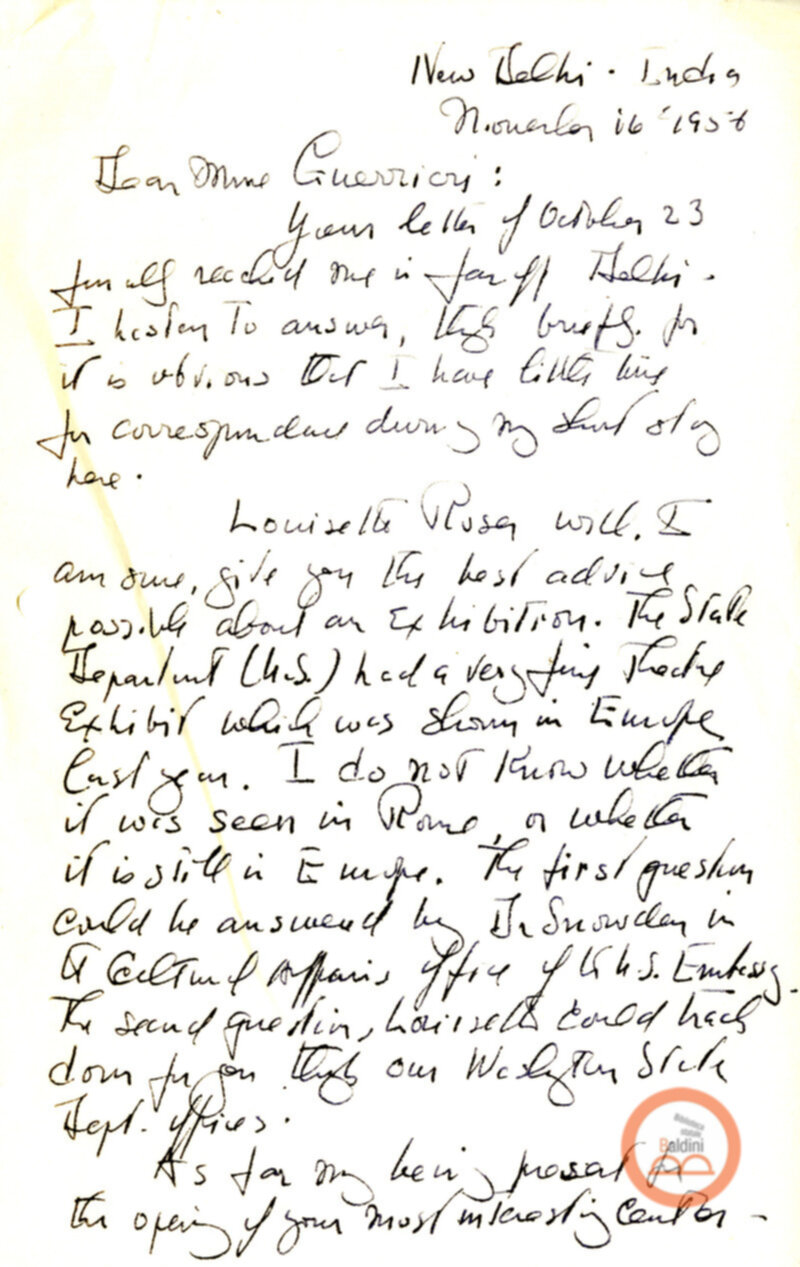 New Delhi · India
November 16 1956
Dear Mme Guerrieri:
Your letter of October 23
finally reached me in far off Delhi.
I hasten to answer, though briefly. for
it is obvious that I have little time
for correspondence during my short stay
here.
Louisette Roser will, I
am sure, give you the best advice
possible about an Exhibition. The State
Department (U.S.) had a very fine Theatre
Exhibit which was shown in Europe
last year. I do not know whether
it was seen in Rome, or whether
it is still in Europe. The first question
could be answered by Dr Snowden in
the Cultural Affairs Office of the U.S. Embassy.
The second question, Louisette could track
down for you through our Washington State
Dept. offices.
As for my being present for
the opening of your most interesting Center -
Biblioteca
statale
Baldini